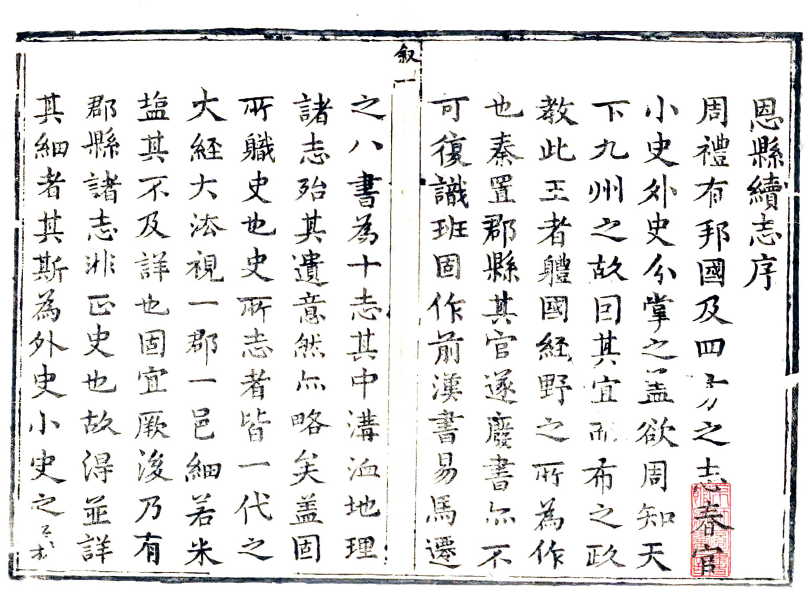 恩縣續志序
周禮有邦國及四方之志春官
小史外史分掌之盖欲周知天
下九州之故因其宜而布之政
教此王者軆國経野之所為作
也秦置郡縣其官遂廢書亦不
可復識班固作前漢書易馬遷
叙一
之八書為十志其中溝洫地理
諸志殆其遺意然亦略矣盖固
所職史也史所志者皆一代之
大経大法視一郡一邑細若米
塩其不及詳也固宜厥後乃有
郡縣諸志非正史也故得並詳
其細者其斯為外史小史之